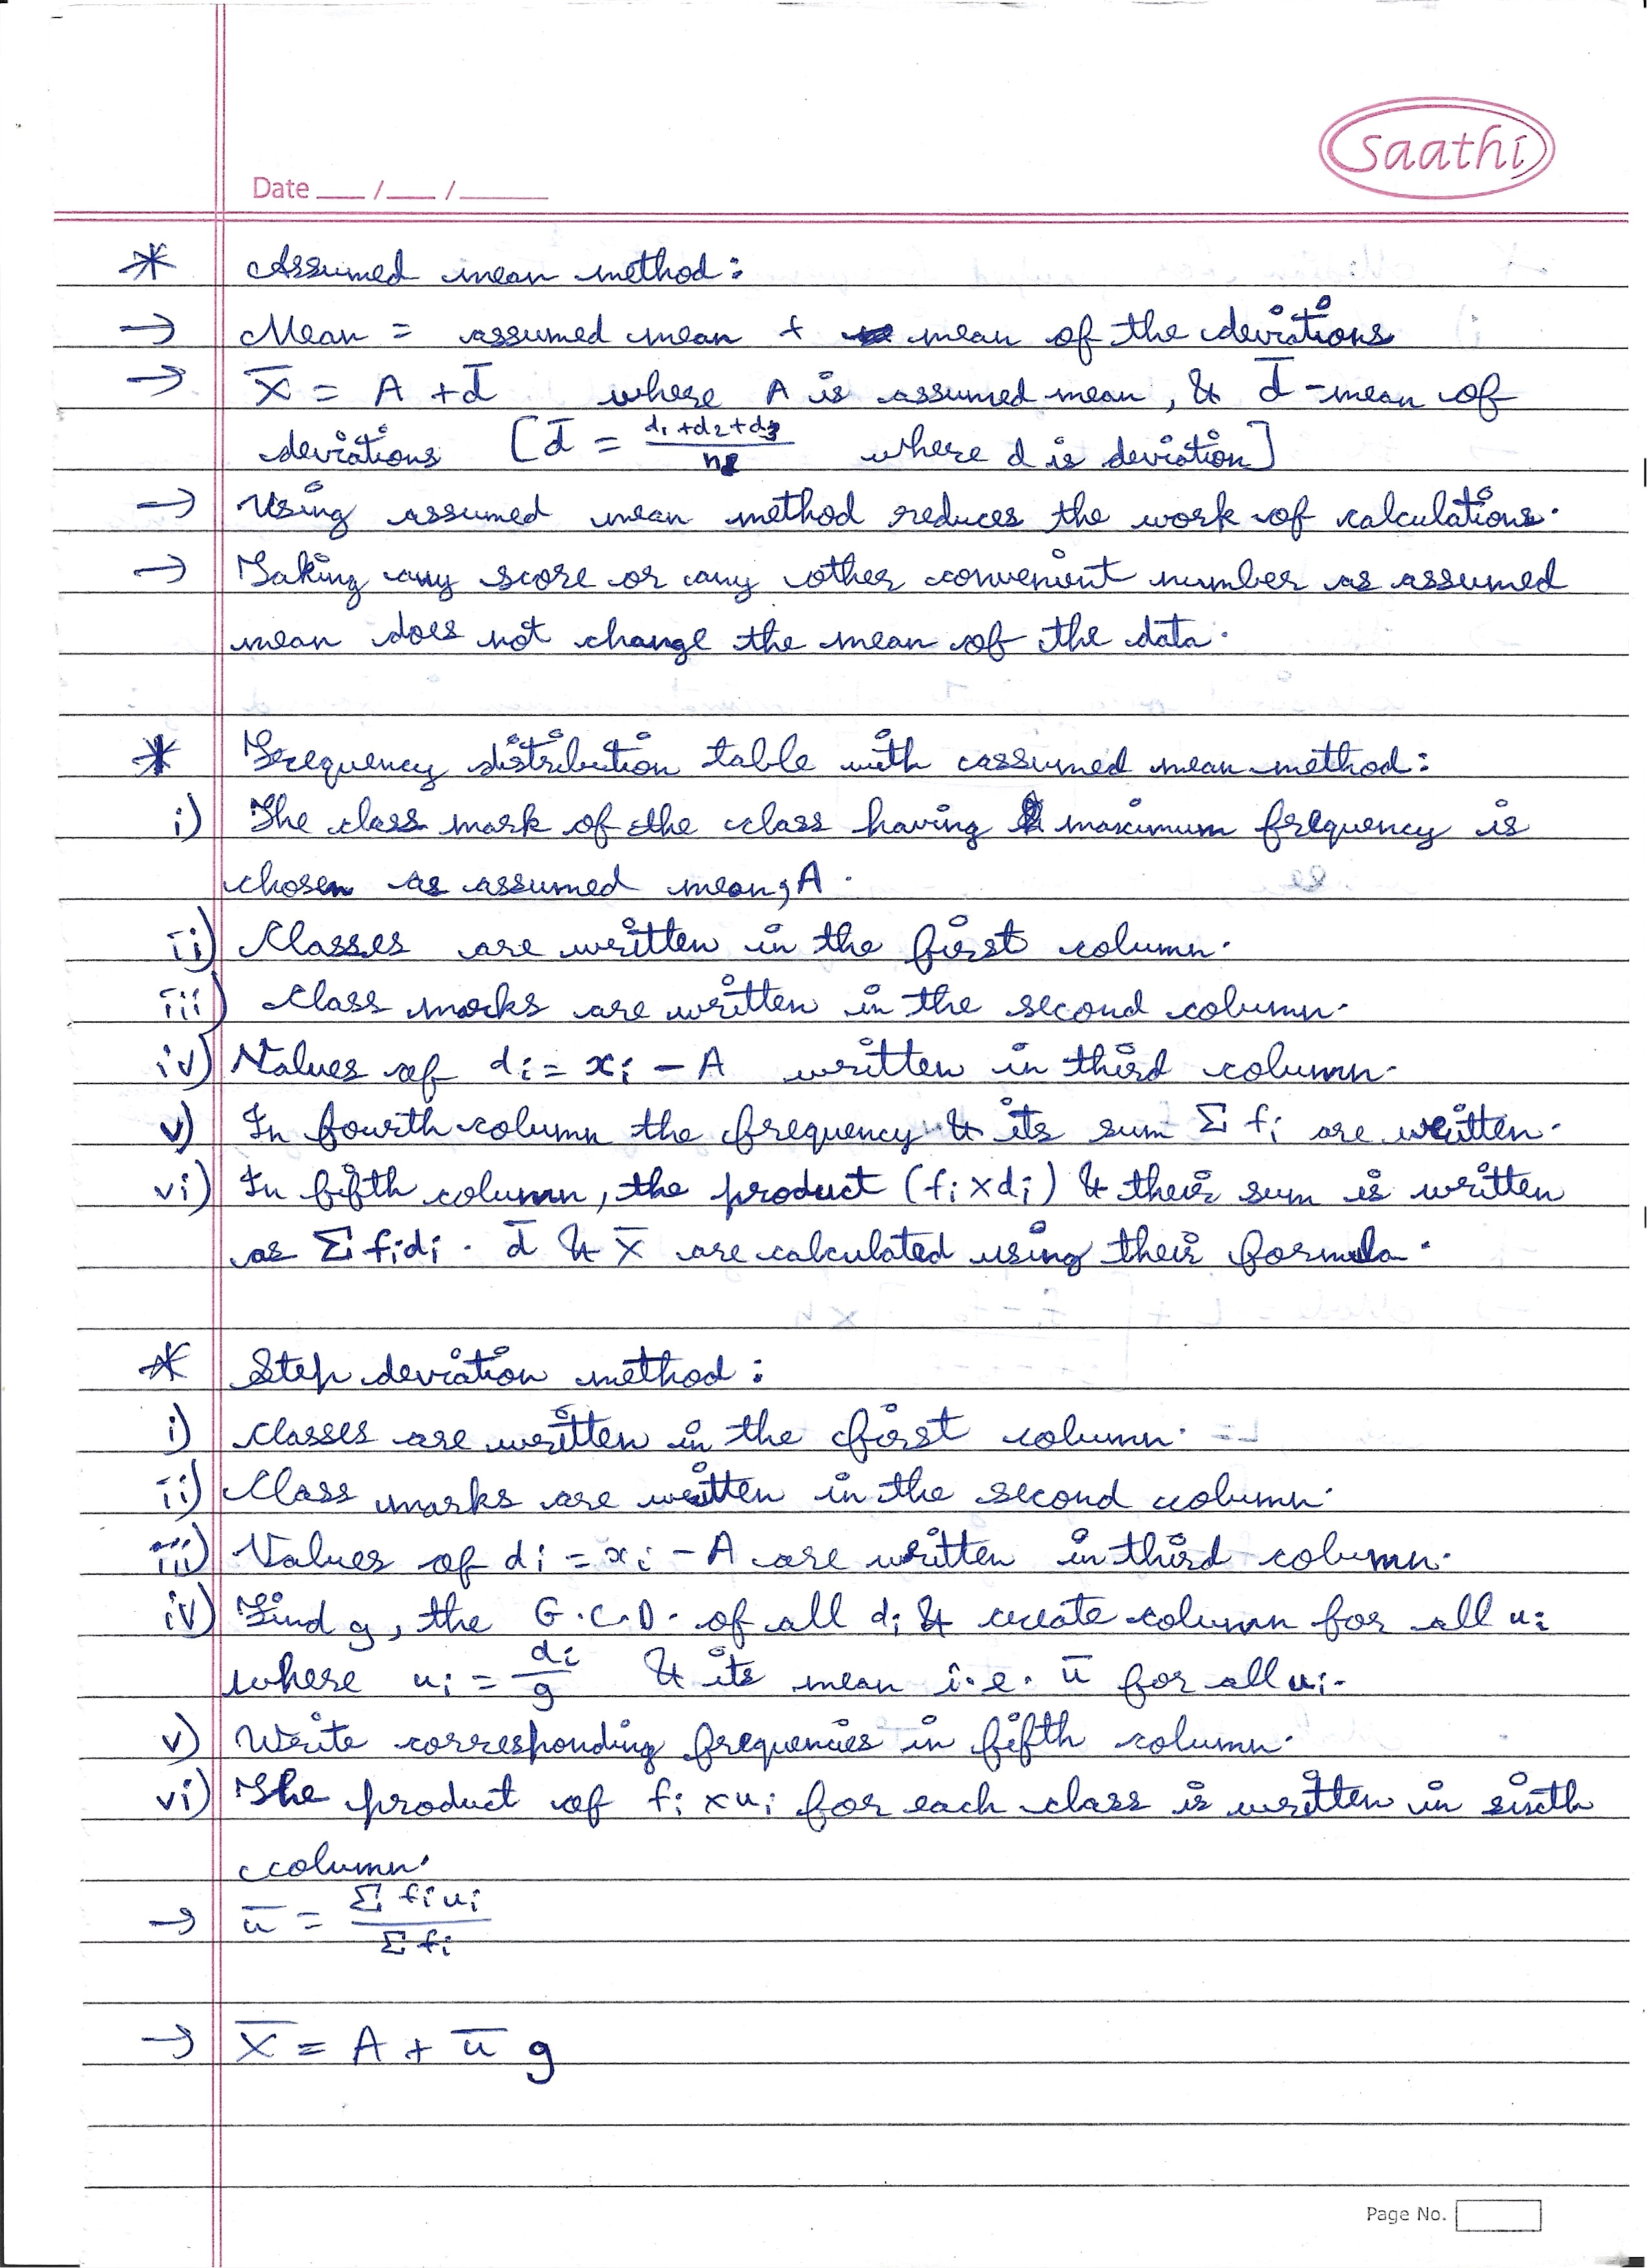 saathi
Date ___ / ___ / ______
* Assumed mean method:
→ Mean = assumed mean + mean of the deviations
→ X̄ = A + d̄ where A is assumed mean, & d̄ - mean of
deviations [d̄ = (d₁+d₂+d₃)/n where d is deviation]
→ Using assumed mean method reduces the work of calculations.
→ Taking any score or any other convenient number as assumed
mean does not change the mean of the data.
* Frequency distribution table with assumed mean method:
i) The class mark of the class having maximum frequency is
chosen as assumed mean, A.
ii) Classes are written in the first column.
iii) Class marks are written in the second column.
iv) Values of dᵢ = xᵢ - A written in third column.
v) In fourth column the frequency & its sum Σ fᵢ are written.
vi) In fifth column, the product (fᵢ x dᵢ) & their sum is written
as Σ fᵢdᵢ. d̄ & X̄ are calculated using their formula.
* Step deviation method:
i) Classes are written in the first column.
ii) Class marks are written in the second column.
iii) Values of dᵢ = xᵢ - A are written in third column.
iv) Find g, the G.C.D. of all dᵢ & create column for all uᵢ
where uᵢ = dᵢ/g & its mean i.e. ū for all uᵢ.
v) Write corresponding frequencies in fifth column.
vi) The product of fᵢ x uᵢ for each class is written in sixth
column.
→ ū = Σ fᵢuᵢ / Σ fᵢ
→ X̄ = A + ū g
Page No.